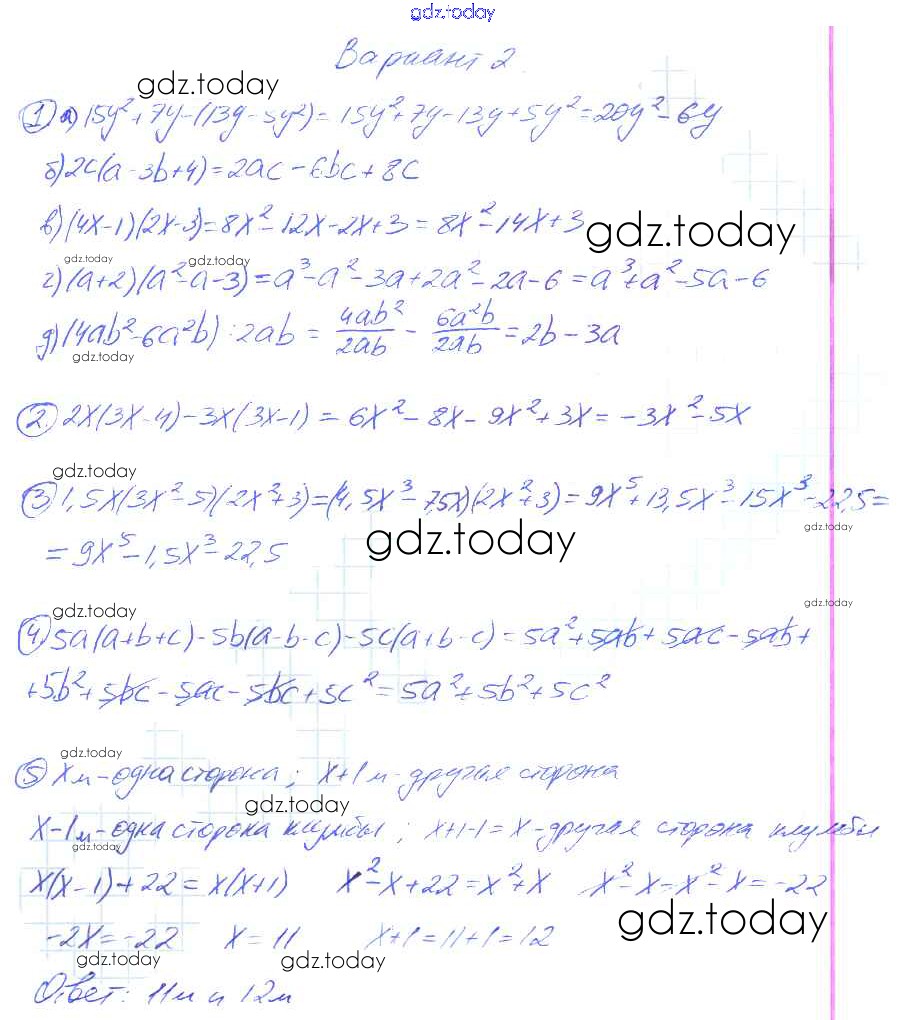 gdz.today
Вариант 2
gdz.today
① а) 15y²+7y-(13y-5y²)=15y²+7y-13y+5y²=20y²-6y
б) 2c(a-3b+4)=2ac-6bc+8c
в) (4x-1)(2x-3)=8x²-12x-2x+3=8x²-14x+3
gdz.today
gdz.today gdz.today gdz.today
г) (a+2)(a²-a-3)=a³-a²-3a+2a²-2a-6=a³+a²-5a-6
д) (4ab²-6a²b):2ab = 4ab²/2ab - 6a²b/2ab = 2b-3a
gdz.today
② 2x(3x-4)-3x(3x-1)=6x²-8x-9x²+3x=-3x²-5x
gdz.today
③ 1,5x(3x²-5)(2x²+3)=(4,5x³-7,5x)(2x²+3)=9x⁵+13,5x³-15x³-22,5=
gdz.today
=9x⁵-1,5x³-22,5
gdz.today
gdz.today gdz.today
④ 5a(a+b+c)-5b(a-b-c)-5c(a+b-c)=5a²+5ab+5ac-5ab+
+5b²+5bc-5ac-5bc+5c²=5a²+5b²+5c²
gdz.today
⑤ x м-одна сторона; x+1 м-другая сторона
gdz.today
x-1 м-одна сторона клумбы; x+1-1=x-другая сторона клумбы
gdz.today gdz.today
x(x-1)+22=x(x+1) x²-x+22=x²+x x²-x=x²-x=-22
gdz.today
-2x=-22 x=11 x+1=11+1=12
gdz.today gdz.today
Ответ: 11м и 12м